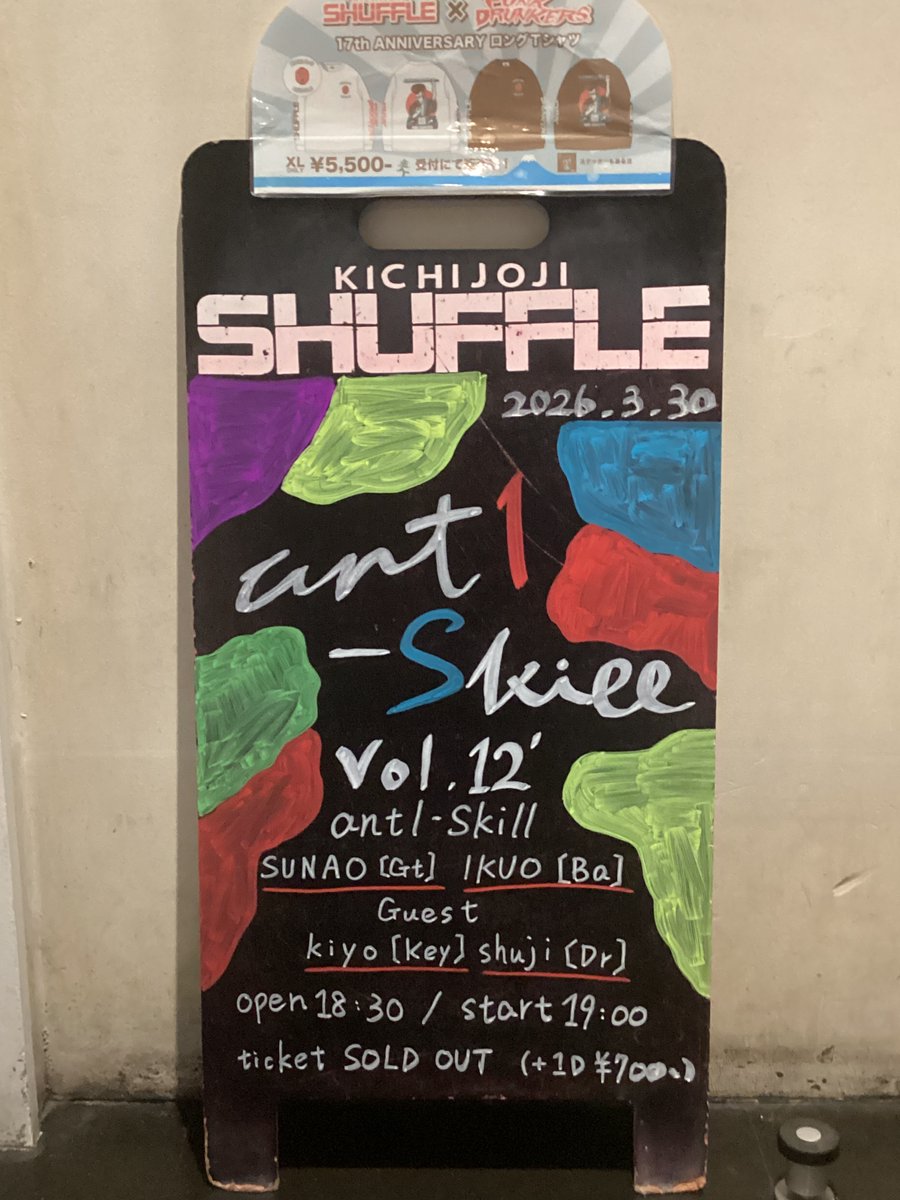 SHUFFLE × PUNK DRUNKERS
17th ANNIVERSARY ロングTシャツ
XL ONLY ¥5,500- 受付にて
KICHIJOJI
SHUFFLE
2026.3.30
ant1
-Skill
Vol.12'
ant1-Skill
SUNAO [Gt] IKUO [Ba]
Guest
kiyo [Key] shuji [Dr]
open 18:30 / start 19:00
ticket SOLD OUT (+1D ¥700-)